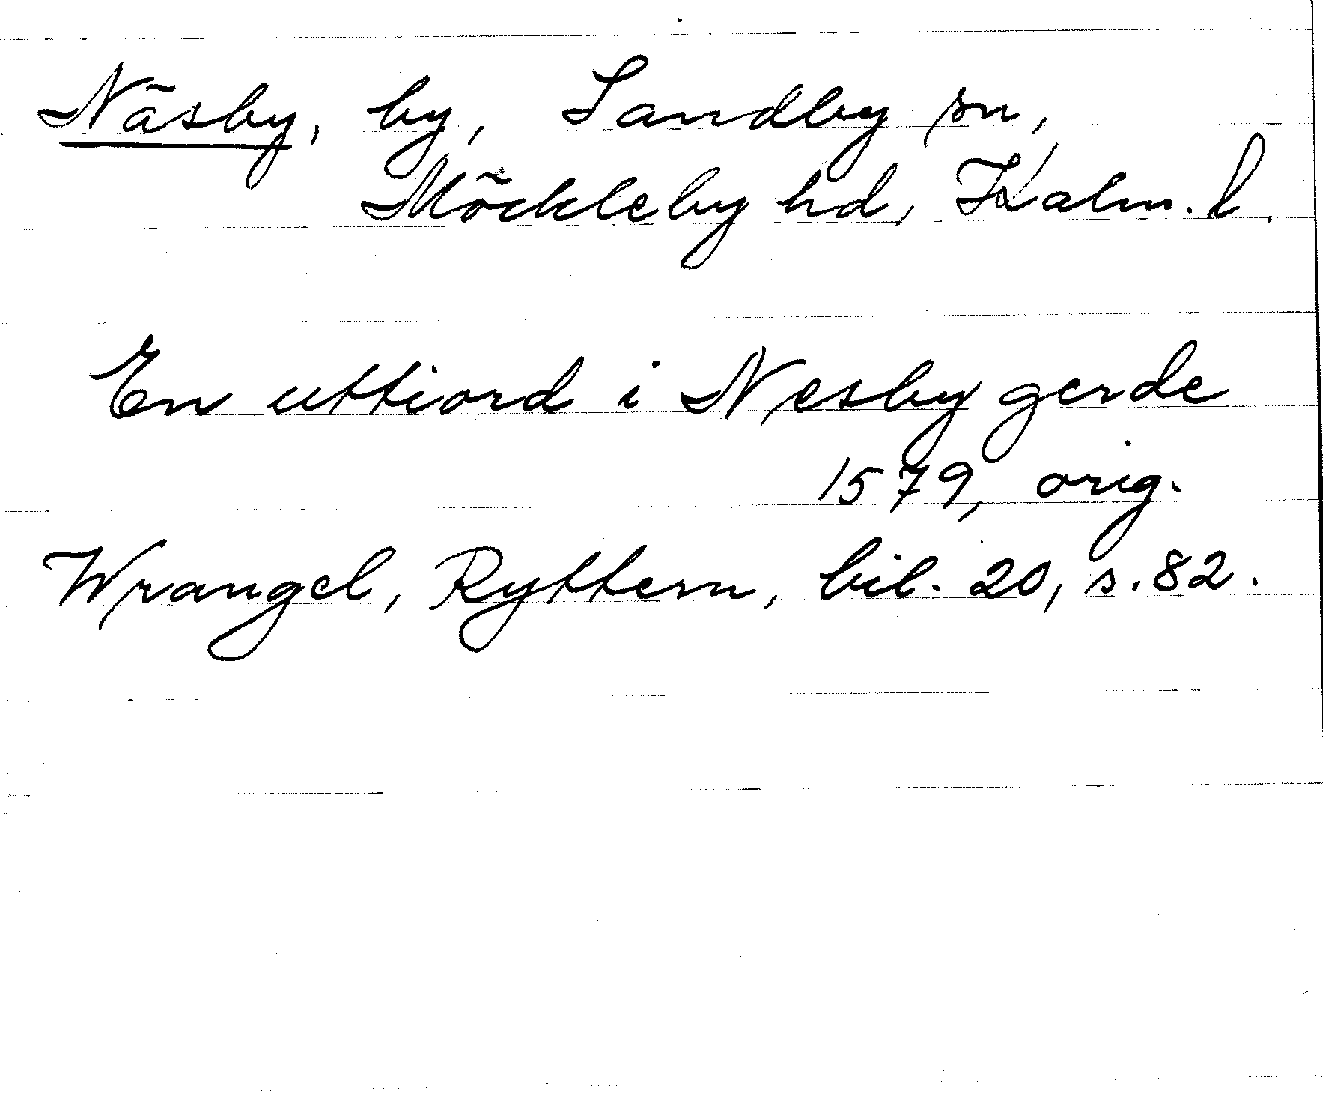 Näsby, by, Sandby sn,
Möckleby hd, Kalm. l.
En uttiord i Nesby gerde
1579, orig.
Wrangel, Ryttern, bil. 20, s. 82.